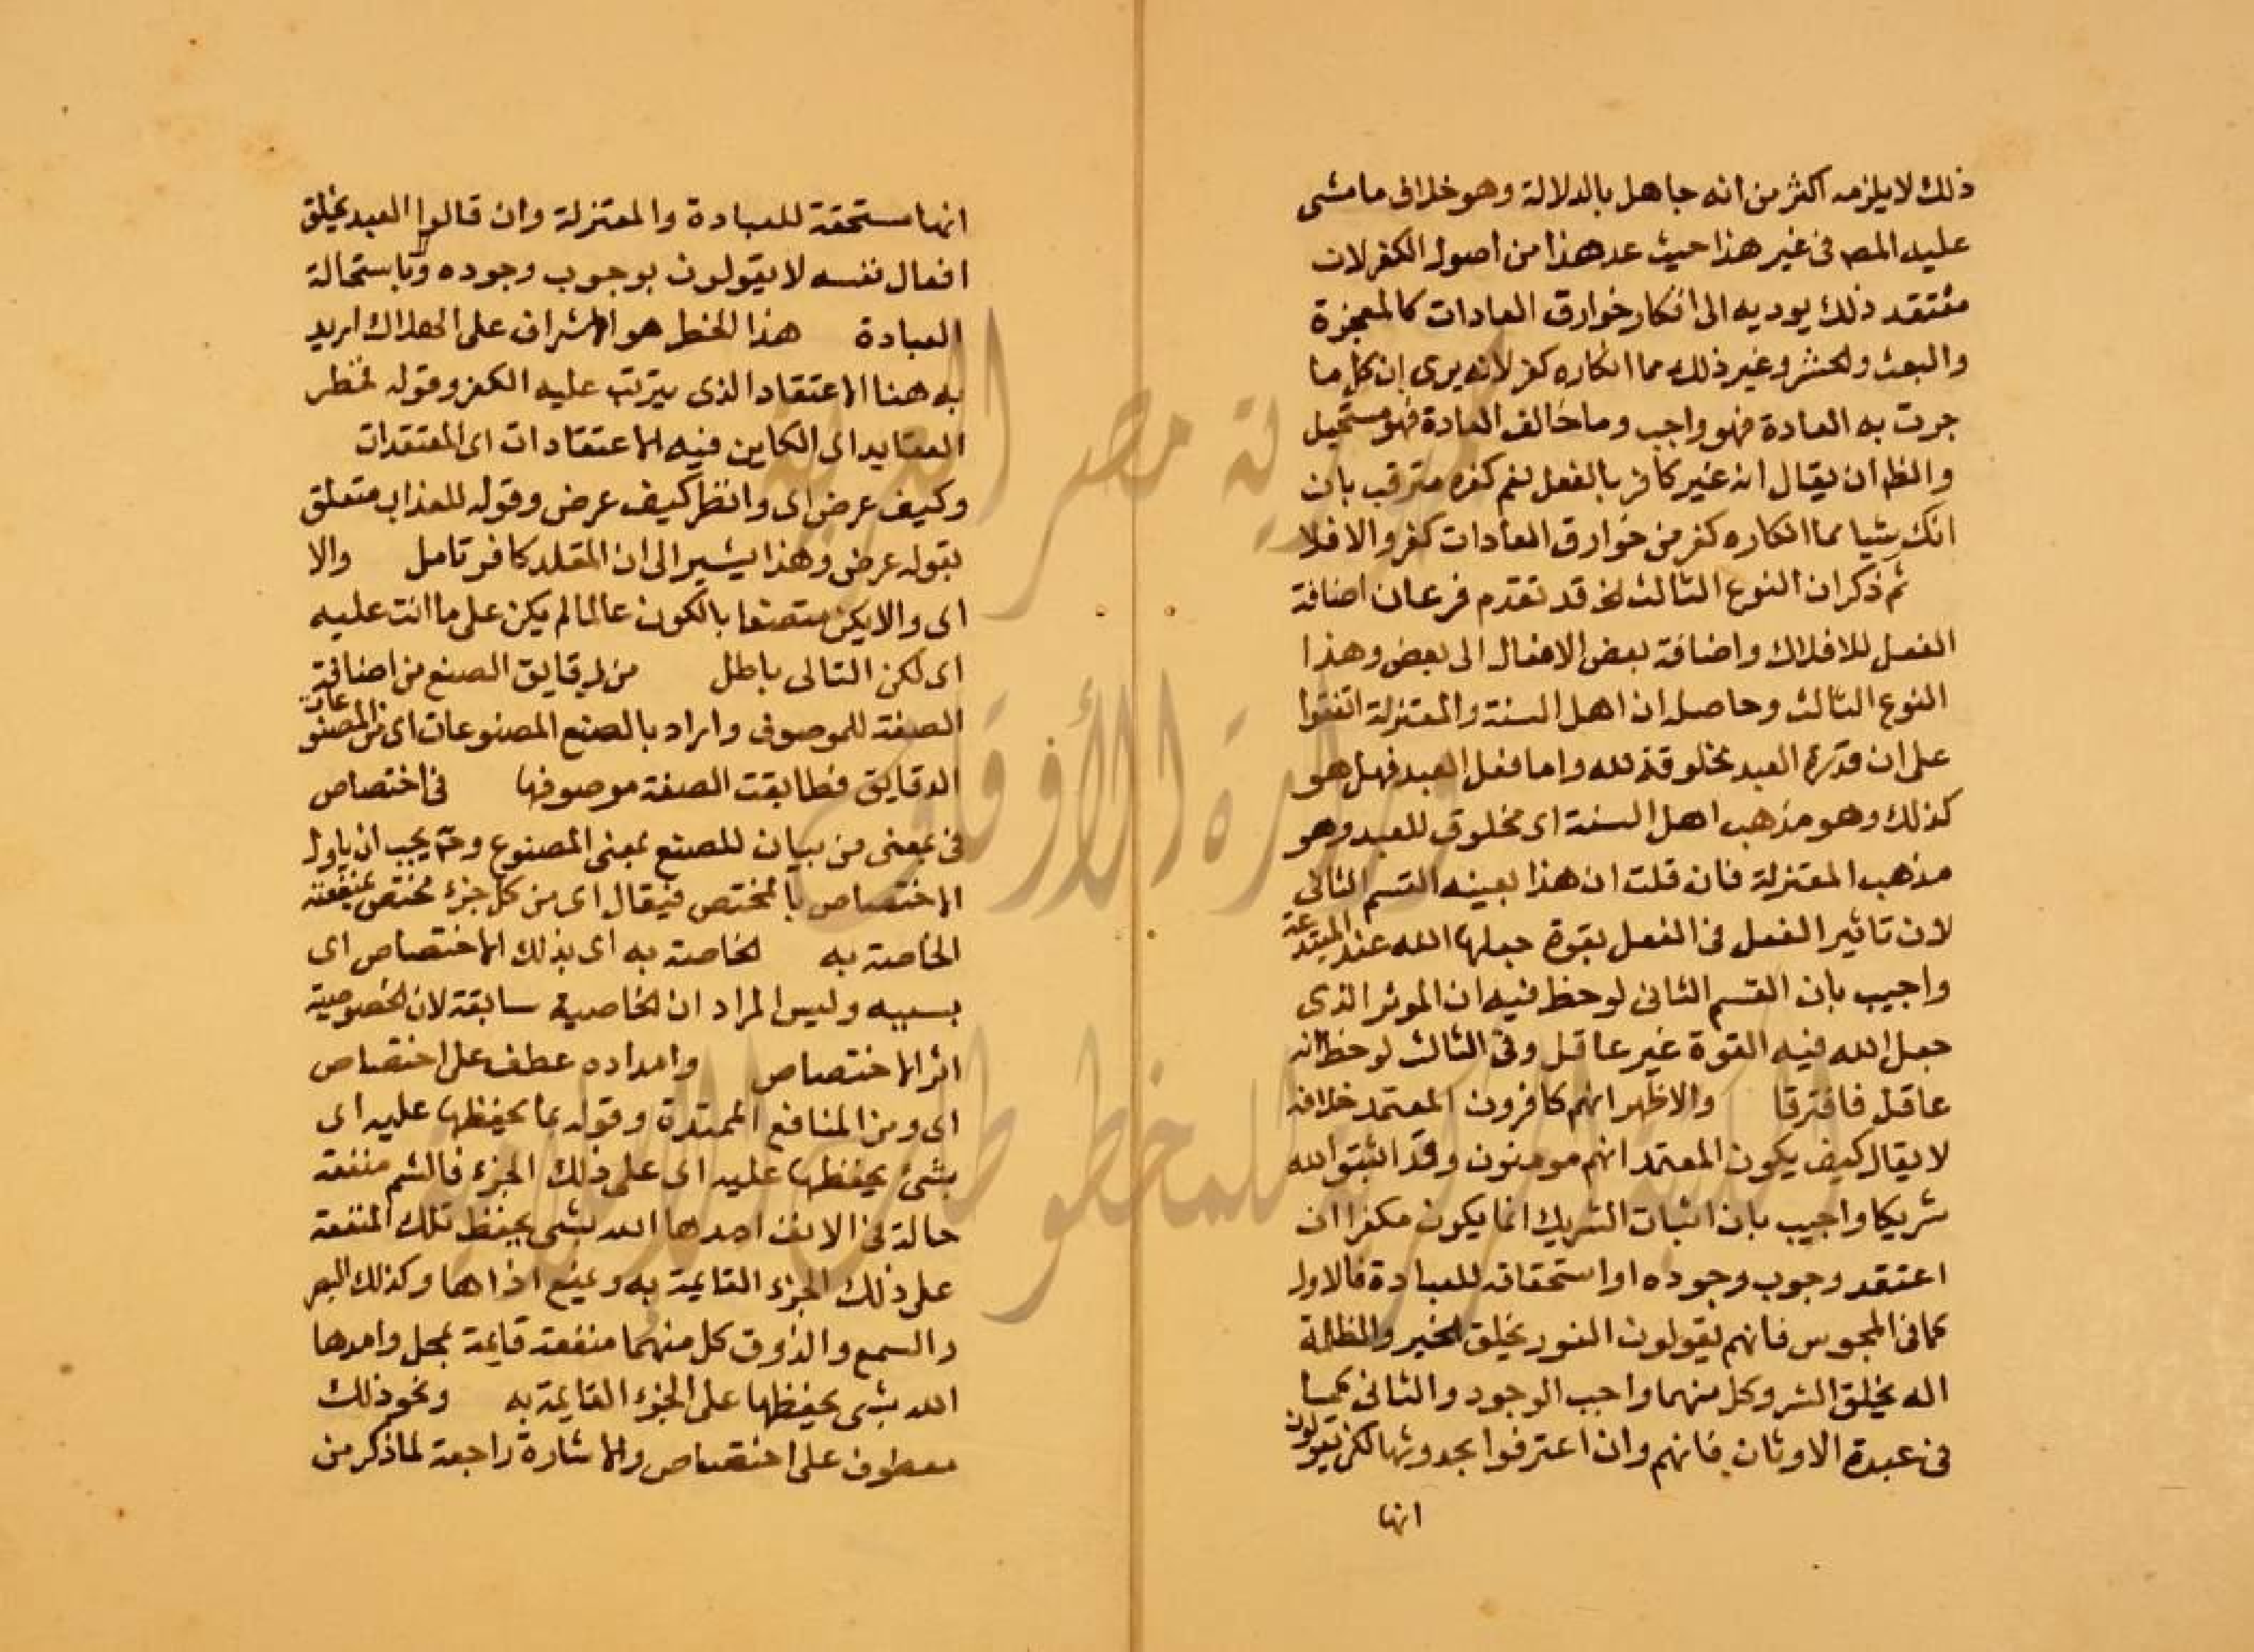 ذلك لا يلزمه اكثر من انه جاهل بالدلالة وهو خلاف ما مشى
عليه المصـ فى غير هذا حيث عد هذا من اصول الكفر لان
معتقد ذلك يوديه الى انكار خوارق العادات كالمعجزة
والبعث والحشر وغير ذلك مما انكاره كفر لانه يرى ان كل ما
جرت به العادة فهو واجب وما خالف العادة فهو مستحيل
والظ ان يقال انه غير كافر بالفعل نعم كفره مترقب بان
انكر شيا مما انكاره كفر من خوارق العادات كفر والا فلا
ثم ذكر ان النوع الثالث الخ قد تقدم فرعان اضافة
الفعل للافلاك واضافة بعض الافعال الى بعض وهذا
النوع الثالث وحاصله ان اهل السنة والمعتزلة اتفقوا
على ان قدرة العبد مخلوقة لله واما فعل العبد فهل هو
كذلك وهو مذهب اهل السنة اى مخلوق للعبد وهو
مذهب المعتزلة فان قلت ان هذا بعينه القسم الثانى
لان تاثير الفعل فى الفعل بقوة جعلها الله عند المبتدعة
واجيب بان القسم الثانى لوحظ فيه ان الموثر الذى
جعل الله فيه القوة غير عاقل وفى الثالث لوحظ انه
عاقل فافترقا والاظهر انهم كافرون المعتمد خلافه
لا يقال كيف يكون المعتمد انهم مومنون وقد اثبتوا لله
شريكا واجيب بان اثبات الشريك انما يكون مكفرا ان
اعتقد وجوب وجوده او استحقاقه للعبادة فالاول
كما فى المجوس فانهم يقولون النور يخلق الخير والظلمة
اله يخلق الشر وكل منهما واجب الوجود والثانى كما
فى عبدة الاوثان فانهم وان اعترفوا بحدوثها لكن يقولون
انها
انها مستحقة للعبادة والمعتزلة وان قالوا العبد يخلق
افعال نفسه لا يقولون بوجوب وجوده ولا باستحالة
العبادة هذا الخطر هو الاشراف على الهلاك اريد
به هنا الاعتقاد الذى يترتب عليه الكفر وقوله لخطر
العقايد اى الكاين فيه الاعتقادات اى المعتقدات
وكيف عرض اى وانظر كيف عرض وقوله للعذاب متعلق
بقوله عرض وهذا يشير الى ان المقلد كافر تامل والا
اى والا يكن متصفا بالكون عالما لم يكن على ما انت عليه
اى لكن التالى باطل من دقايق الصنع من اضافة
الصفة للموصوف واراد بالصنع المصنوعات اى من المصنوعات
الدقايق فطابقت الصفة موصوفها فى اختصاص
فى بمعنى من بيان للصنع بمعنى المصنوع وح يجب ان ياول
الاختصاص بالمختص فيقال اى من كل جزء مختص بمنفعته
الخاصة به الخاصة به اى بذلك الاختصاص اى
بسببه وليس المراد ان الخاصية سابقة لان الخصوصية
اثر الاختصاص وامداده عطف على اختصاص
اى ومن المنافع الممتدة وقوله بما يحفظها عليه اى
بشئ يحفظها عليه اى على ذلك الجزء فالشم منفعة
حالة فى الانف امدها الله بشى يحفظ تلك المنفعة
على ذلك الجزء القايمة به ويمنع اذاها وكذلك البصر
والسمع والذوق كل منهما منفعة قايمة بمحل وامدها
الله بشى يحفظها على الجزء القايمة به ونحو ذلك
معطوف على اختصاص والاشارة راجعة لما ذكر من